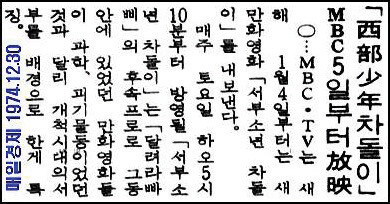 「西部少年차돌이」
MBC 5일부터 放映
○…MBC·TV는 새
해 1월4일부터는 새
만화영화「서부소년 차돌
이」를 내보낸다.
매주 토요일 하오5시
10분부터 방영될「서부소
년 차돌이」는「달려라빠
삐」의 후속프로로 그동
안에 있었던 만화영화들
이 과학, 괴기물등이었던
것과 달리 개척시대의서
부를 배경으로 한게 특
징.
매일경제 1974.12.30